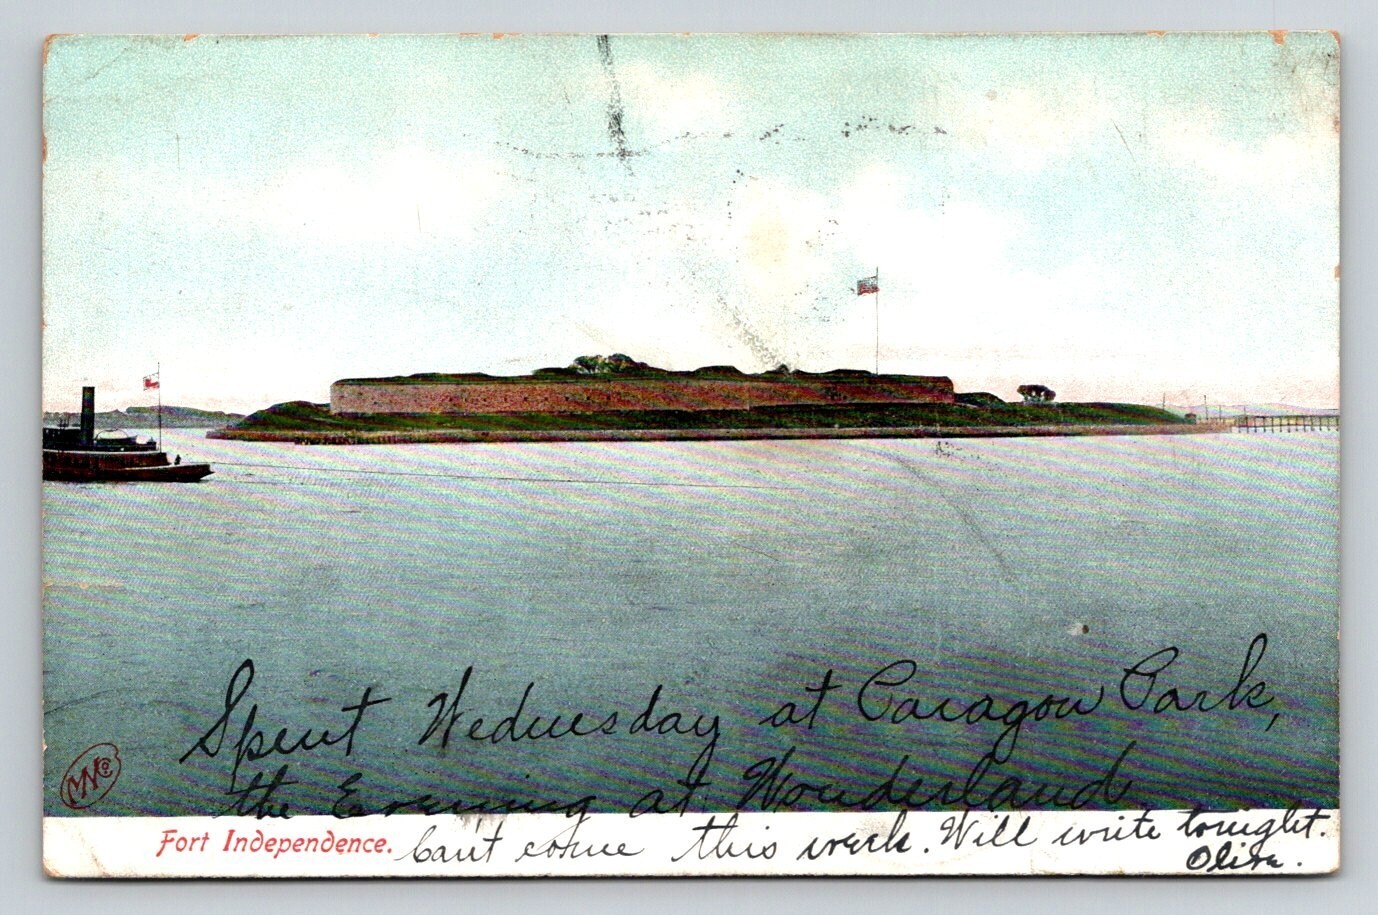 Spent Wednesday at Paragon Park,
the Evening at Wonderland
MNCo
Fort Independence. Can't come this week. Will write tonight.
Olive.